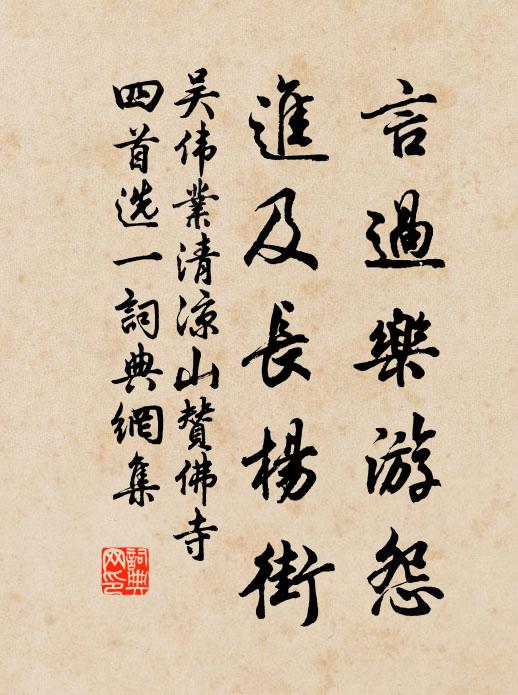 言過樂游怨
進及長楊街
吴伟業清凉山贊佛寺
四首选一詞典網集
詞典
网印